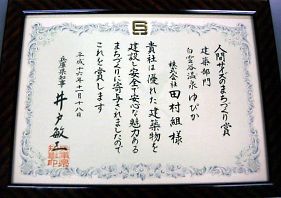 人間サイズのまちづくり賞
建築部門
白雲谷温泉 ゆぴか
株式会社 田村組 様
貴社は優れた建築物を
建設し安全で安心な魅力ある
まちづくりに寄与されましたので
これを賞します
平成十六年十一月十八日
兵庫県知事 井戸敏三